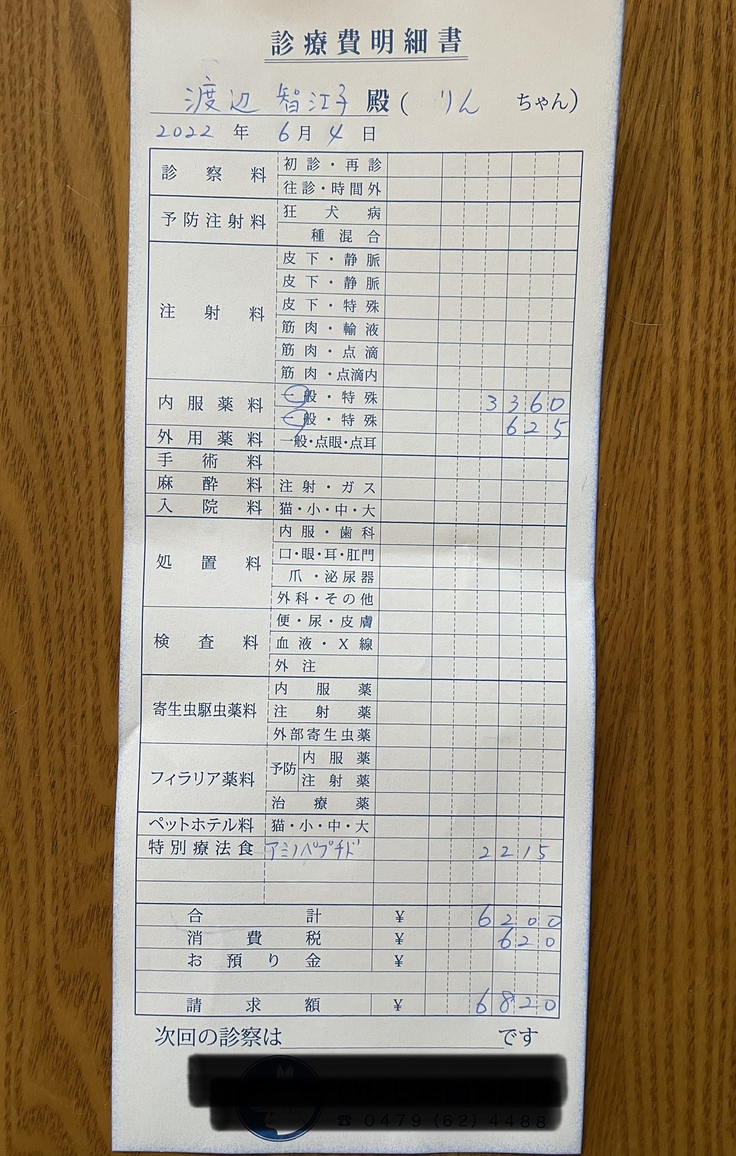 診療費明細書
渡辺 智江子 殿 ( りん ちゃん)
2022 年 6月 4 日
診察料 初診・再診
往診・時間外
予防注射料 狂犬病
種混合
注射料 皮下・静脈
皮下・静脈
皮下・特殊
筋肉・輸液
筋肉・点滴
筋肉・点滴内
内服薬料 一般・特殊 3360
一般・特殊 625
外用薬料 一般・点眼・点耳
手術料
麻酔料 注射・ガス
入院料 猫・小・中・大
処置料 内服・歯科
口・眼・耳・肛門
爪・泌尿器
外科・その他
検査料 便・尿・皮膚
血液・X線
外注
寄生虫駆虫薬料 内服薬
注射薬
外部寄生虫薬
フィラリア薬料 予防 内服薬
注射薬
治療薬
ペットホテル料 猫・小・中・大
特別療法食 アミノペプチド 2215
合計 ¥ 6200
消費税 ¥ 620
お預り金 ¥
請求額 ¥ 6820
次回の診察は です
☎ 0479 (62) 4488